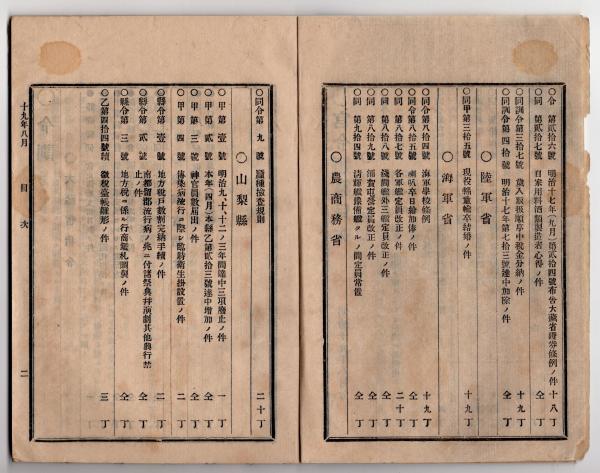 ○令 第貳拾六號 明治十七年(九月)第貳拾四號布告大藏省證券條例ノ件 十八丁
○同 第貳拾七號 自家用料酒類製造者心得ノ件 仝丁
○同訓令第三拾七號 歲入取扱順序中税金分納ノ件 十九丁
○同訓令第四拾號 明治十七年第七拾三號達中加除ノ件 仝丁
○陸軍省
○同甲第三拾五號 現役輜重輸卒結婚ノ件 十九丁
○海軍省
○同令第八拾四號 海軍學校條例 十九丁
○同令第八拾五號 喇叭卒日給加俸ノ件 仝丁
○同 第八拾七號 各軍艦定員改正ノ件 二十丁
○同 第八拾八號 淺間艦外三艦定員改正ノ件 仝丁
○同 第八拾九號 橫須賀屯營定員改正ノ件 仝丁
○同 第九拾四號 清輝艦豫備艦タルノ間定員常置 仝丁
○農商務省
○同令第九號 蠶種檢査規則 二十丁
○山梨縣
○甲第壹號 明治九、十、十二ノ三年間達中三項廢止ノ件 一丁
○甲第貳號 本年(四月)本縣乙第貳拾三號達中增加ノ件 仝丁
○甲第三號 神官員數屆出ノ件 仝丁
○甲第四號 傳染病流行ノ際シ臨時衛生掛設置ノ件 二丁
○縣令第壹號 地方税戶數割完納手續ノ件 二丁
○縣令第貳號 南都留郡流行病ノ兆ニ付諸祭典幷演劇其他興行禁
止ノ件 仝丁
○縣令第三號 地方税ニ係ル行商鑑札調製ノ件 仝丁
○乙第四拾四號續 徵税臺帳雛形ノ件 三丁
十九年八月 目次 二